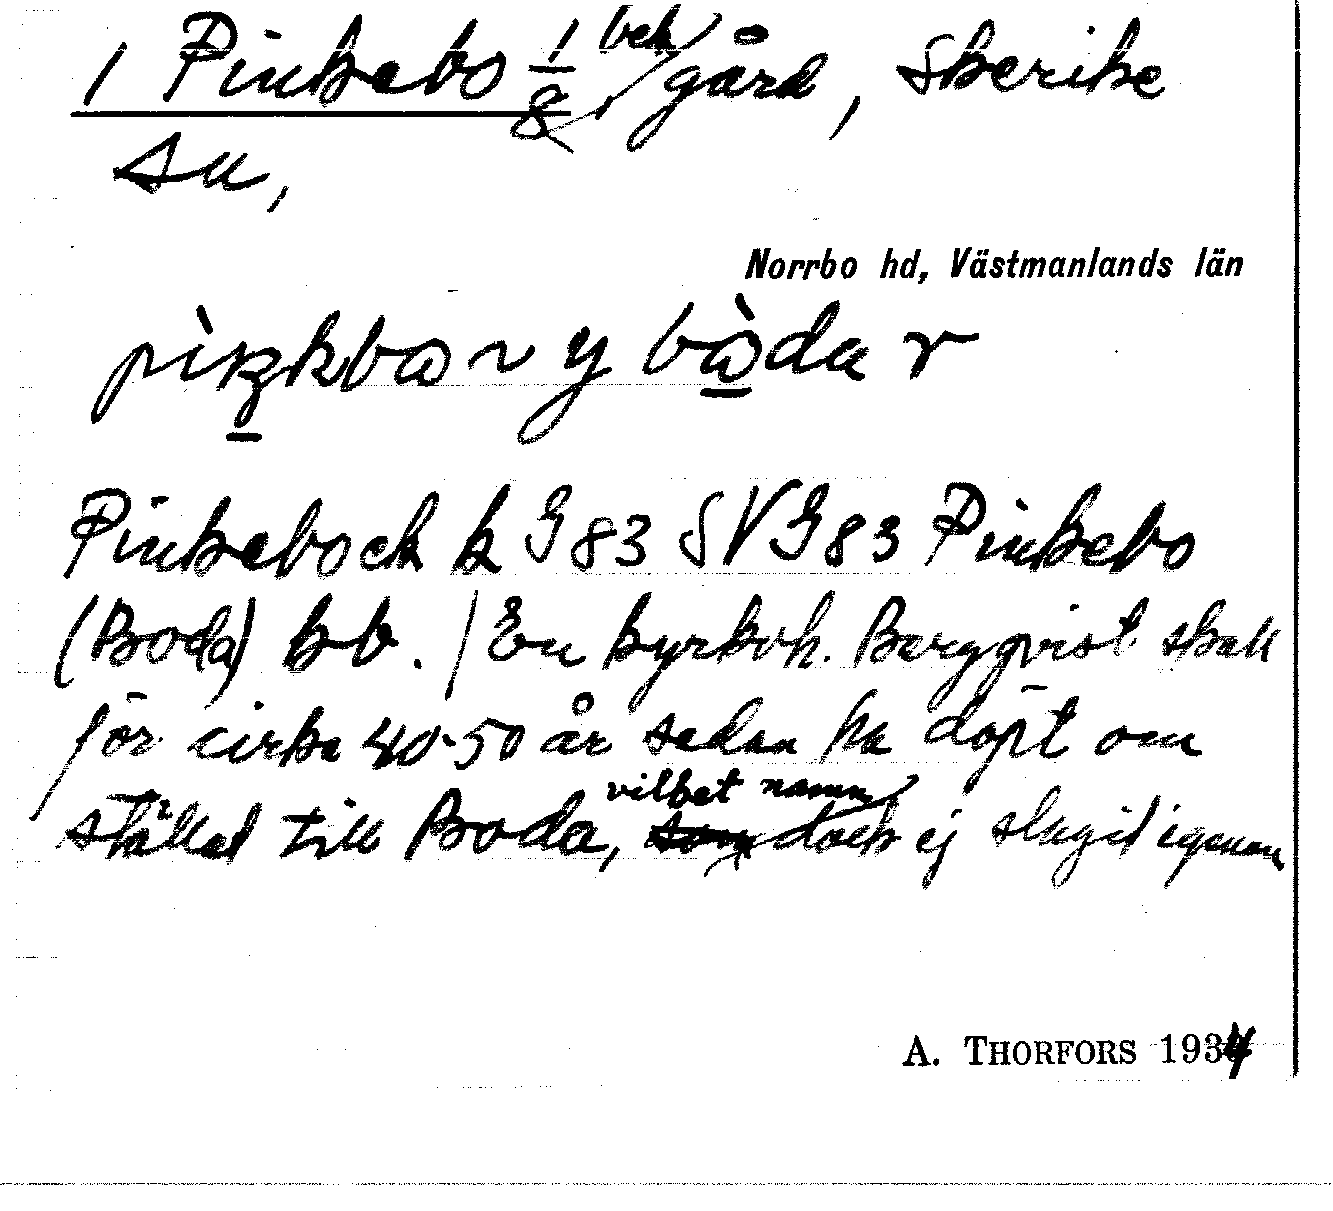 1 Pinkebo 1/8 beb. gård, Skerike
sn,
Norrbo hd, Västmanlands län
Pinkeboek k G 83 SVG 83 Pinkebo
(Boda) kb. / En kyrkoh. Bergqvist skall
för cirka 40-50 år sedan ha döpt om
stället till Boda, vilket namn dock ej slagit igenom
A. THORFORS 1934